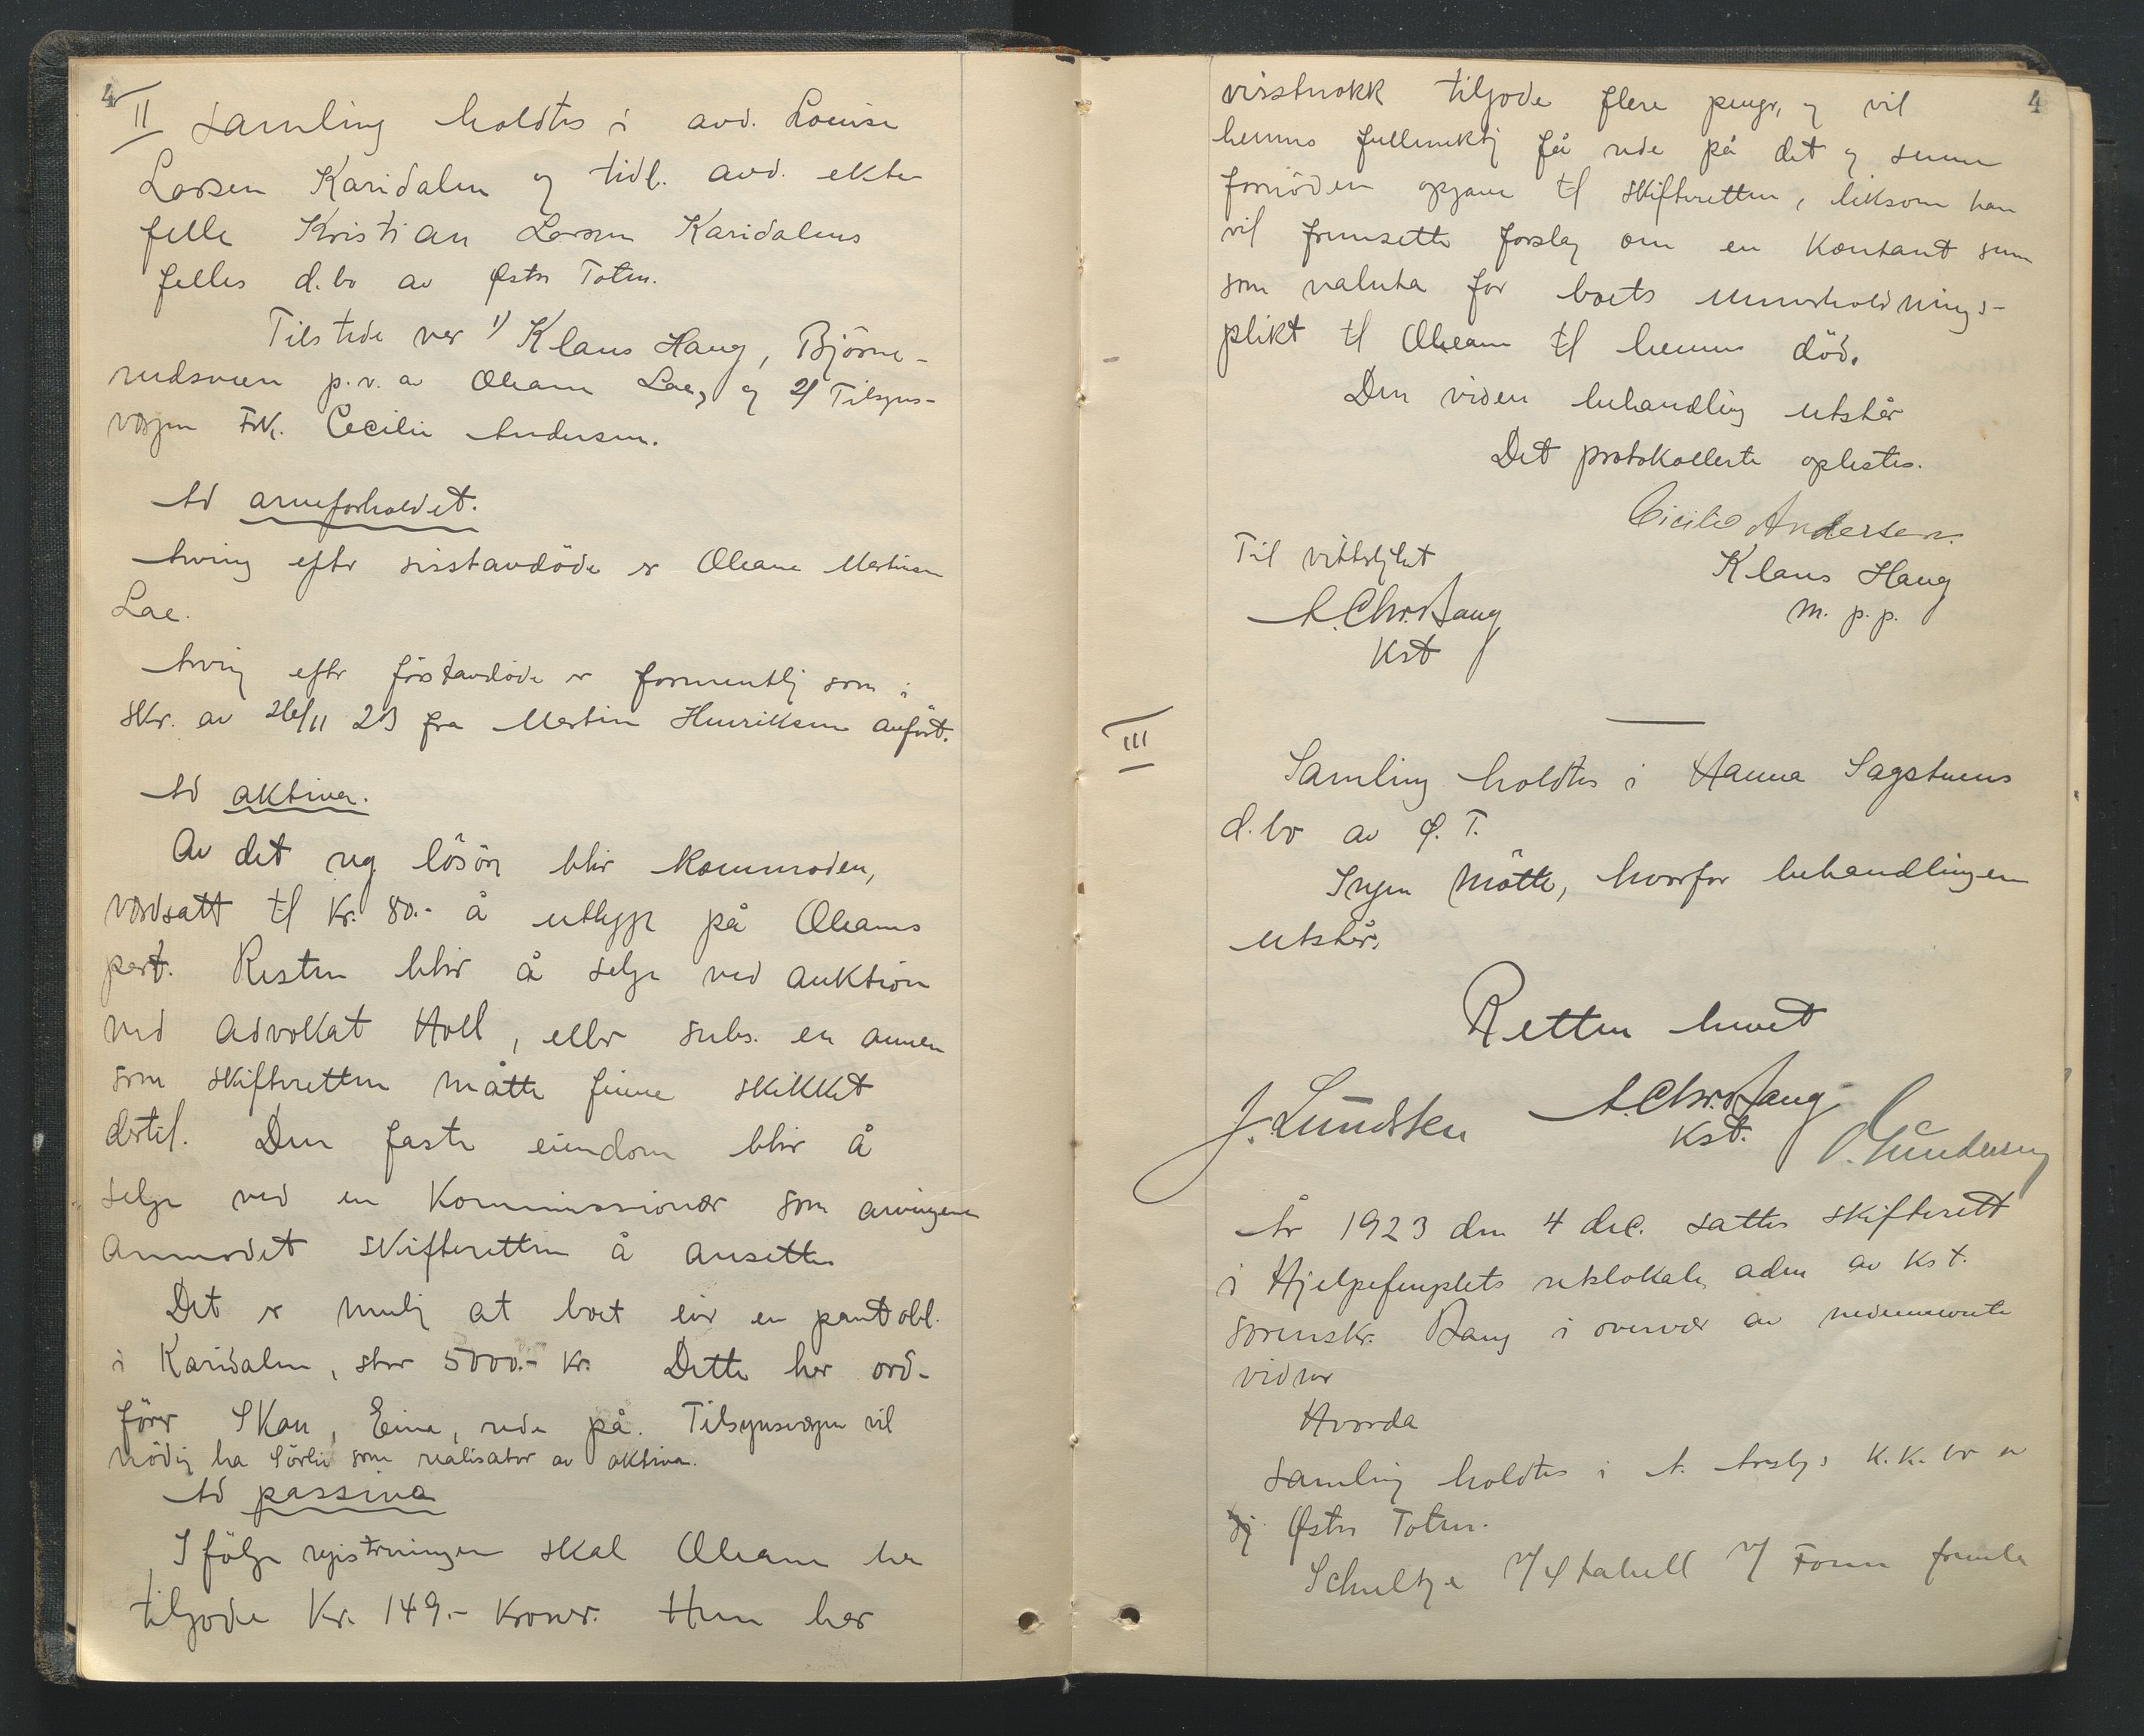 4
II samling holdtes i avd. Louise
Larsen Karidalen og tidl. avd. ekte
felle Kristian Larsen Karidalens
felles d.bo av Østre Toten.
Tilstede var 1) Klaus Haug, Björne-
rudsveien p.v.a Oleane Lae, og 2) Tilsyns-
vergen Frk. Cecilie Andersen.
Ad arveforholdet.
Arving efter sisstavdöde er Oleane Martinsen
Lae.
Arving efter förstavdöde er formentlig som i
skr. av 26/11 23 fra Martin Henriksen anfört.
Ad aktiva.
Av det reg. lösöre blir kommoden,
verdsatt til Kr. 80.- å utlegge på Oleanes
part. Resten blir å selge ved auktion
ved advokat Holl, eller subs. en annen
som skifteretten måtte finne skikket
dertil. Den faste eiendom blir å
selge ved en kommissionær som arvingene
anmodet skifteretten å ansette
Det er mulig at boet eier en pantobl.
i Karidalen, stor 5000.- kr. Dette har ord-
förer Skau, Eina, rede på. Tilsynsvergen vil
nödig ha Sörlie som realisator av aktiva.
Ad passiva
Ifölge registreringen skal Oleane ha
tilgode Kr. 149.- kroner. Hun har
4
visstnokk tilgode flere penger, og vil
hennes fullmektig få rede på det og senere
fornöden opgave til skifteretten, liksom han
vil fremsette forslag om en kontant sum
som valuta for boets underholdnings-
plikt til Oleane til hennes död.
Den videre behandling utstår
Det protokollerte oplestes.
Cicilie Andersen.
Til vitterlighet
Klaus Haug
A.Chr.Haug
m. p. p.
Kst
III
Samling holdtes i Hanna Sagstuens
d.bo av Ø. T.
Ingen mötte, hvorfor behandlingen
utstår.
Retten hevet
A.Chr.Haug
J. Lundsten
Kst.
O. Gundersen
År 1923 den 4 dec. sattes skifterett
i Hjelpefengslets retslokale, adm av kst.
sorenskr. Haug i overvær av nedennevnte
vidner
Hvorda
samling holdtes i A. K.K. bo av
Østre Toten.
Schultze v/ Stabell v/ Fonn fremla